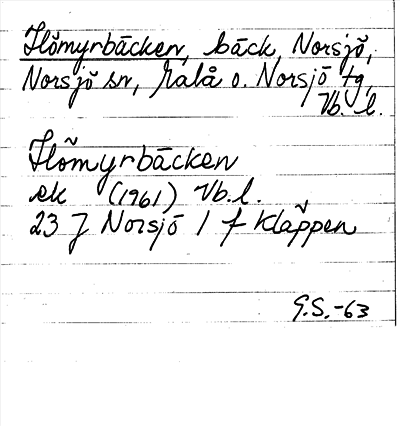 Flömyrbäcken, bäck, Norsjö,
Norsjö sn, Malå o. Norsjö tg,
Vb. l.
Flömyrbäcken
ek (1961) Vb.l.
23 J Norsjö 1 f Kläppen
G.S.-63